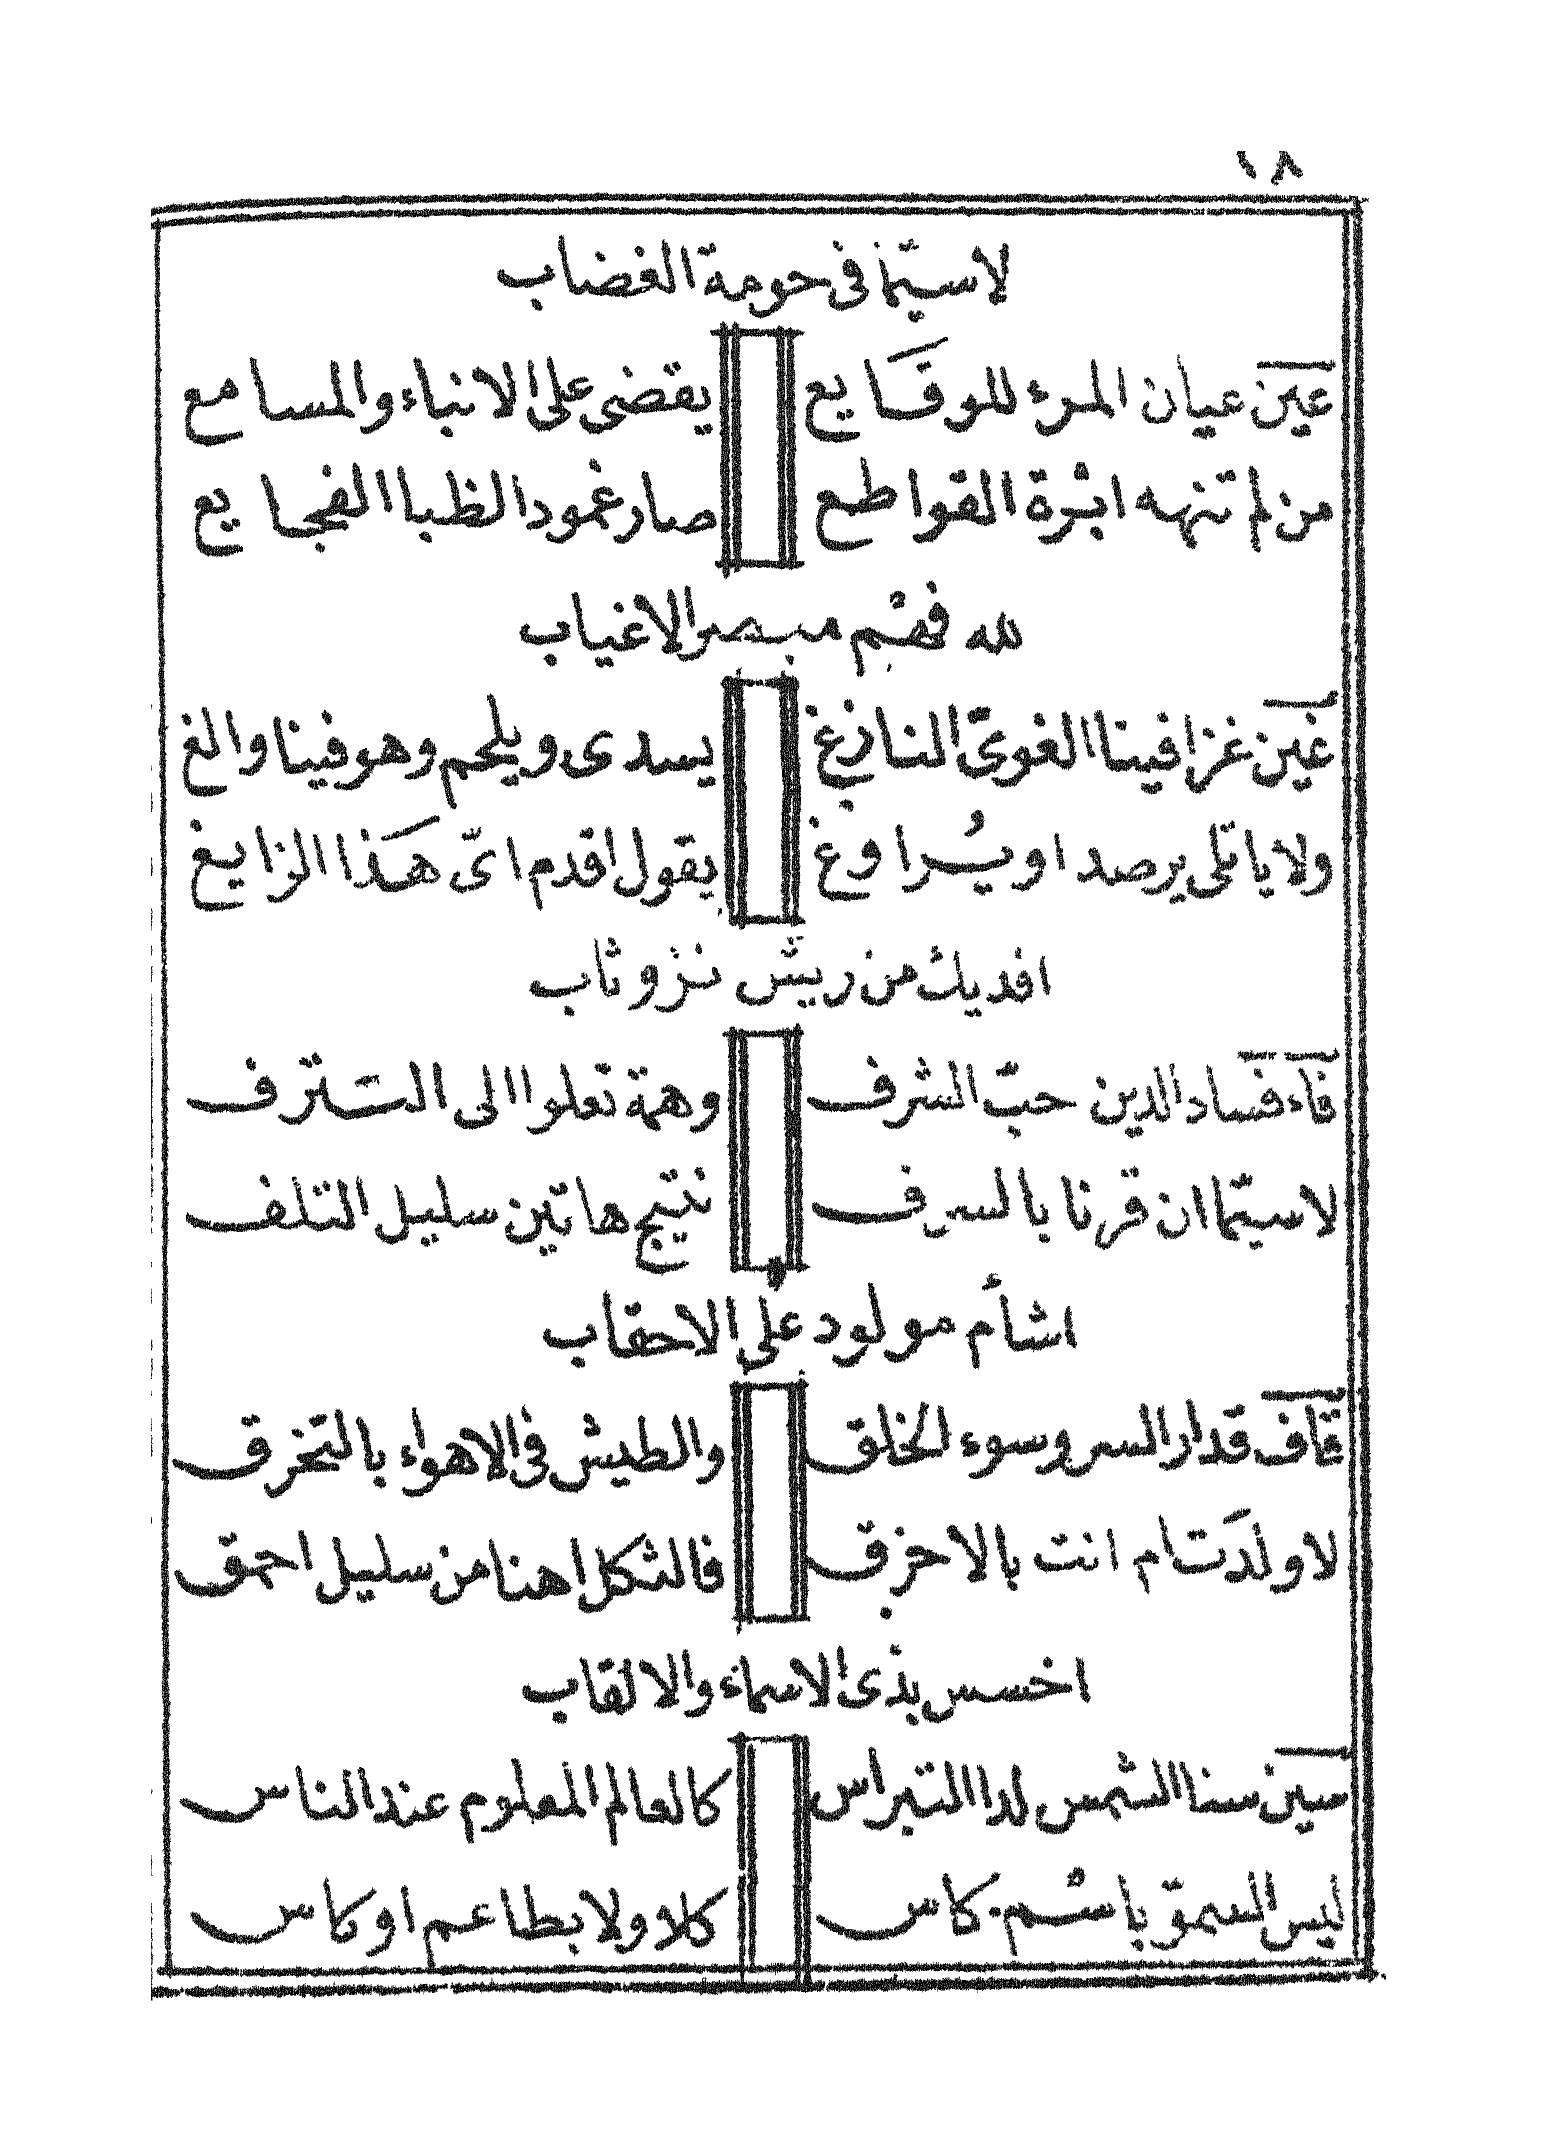 ١٨
لاسيّما فى حومة الغضاب
عين عيان المرء للوقايع يقضى على الانباء والمسامع
من لم تنهه ابثرة القواطع صار غمود الظبا الفجايع
لله فهم مبصر الاغياب
غين غزا فينا الغوىّ النازغ يسدى ويلحم وهو فينا والغ
ولا ياتلى يرصد او يُراوغ يقول اقدم اىّ هذا الزايغ
افديك من ريش نزو ثاب
فاء فساد الدين حبّ الشرف وهمة تعلوا الى السترف
لاسيّما ان قرنا بالسرف نتيج هاتين سليل التلف
اشأم مولود على الاحقاب
قاف قدار السر وسوء الخلق والطيش فى الاهواء بالتخرق
لا ولدت ام انت بالاخرق فالثكل اهنا من سليل احمق
اخسس بذى الاسماء والالقاب
سين سنا الشمس لدا التبراس كالعالم المعلوم عند الناس
ليس السمق باسم كاس كلا ولا بطاعم او كاس